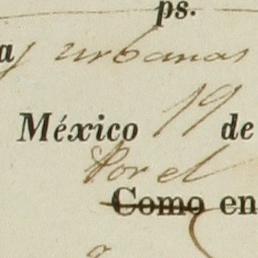 ps.
a y urbanas
México 19 de
Por el
Como en